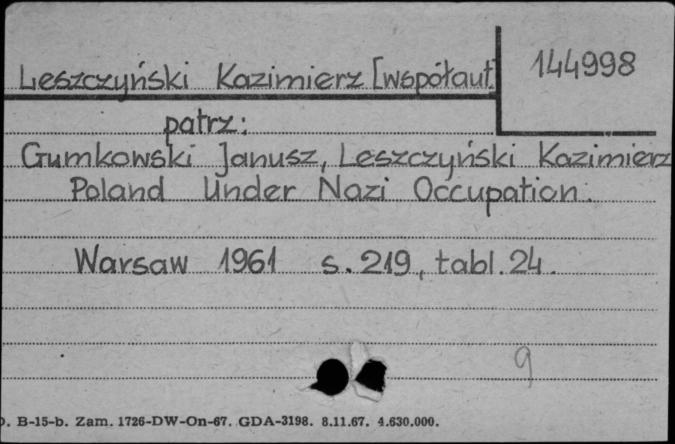 Leszczyński Kazimierz [współaut.
144998
patrz:
Gumkowski Janusz, Leszczyński Kazimierz
Poland Under Nazi Occupation.
Warsaw 1961 s. 219, tabl. 24.
9
B-15-b. Zam. 1726-DW-On-67. GDA-3198. 8.11.67. 4.630.000.